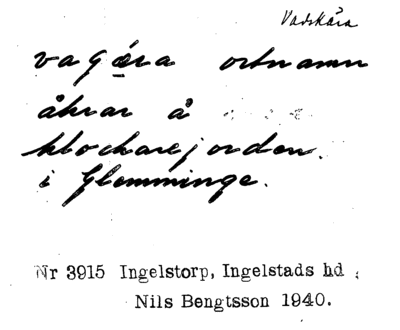 Vadskåra
vagǽra ortnamn
åkrar å
klockarejorden.
i Glemminge.
Nr 3915 Ingelstorp, Ingelstads hd.
Nils Bengtsson 1940.